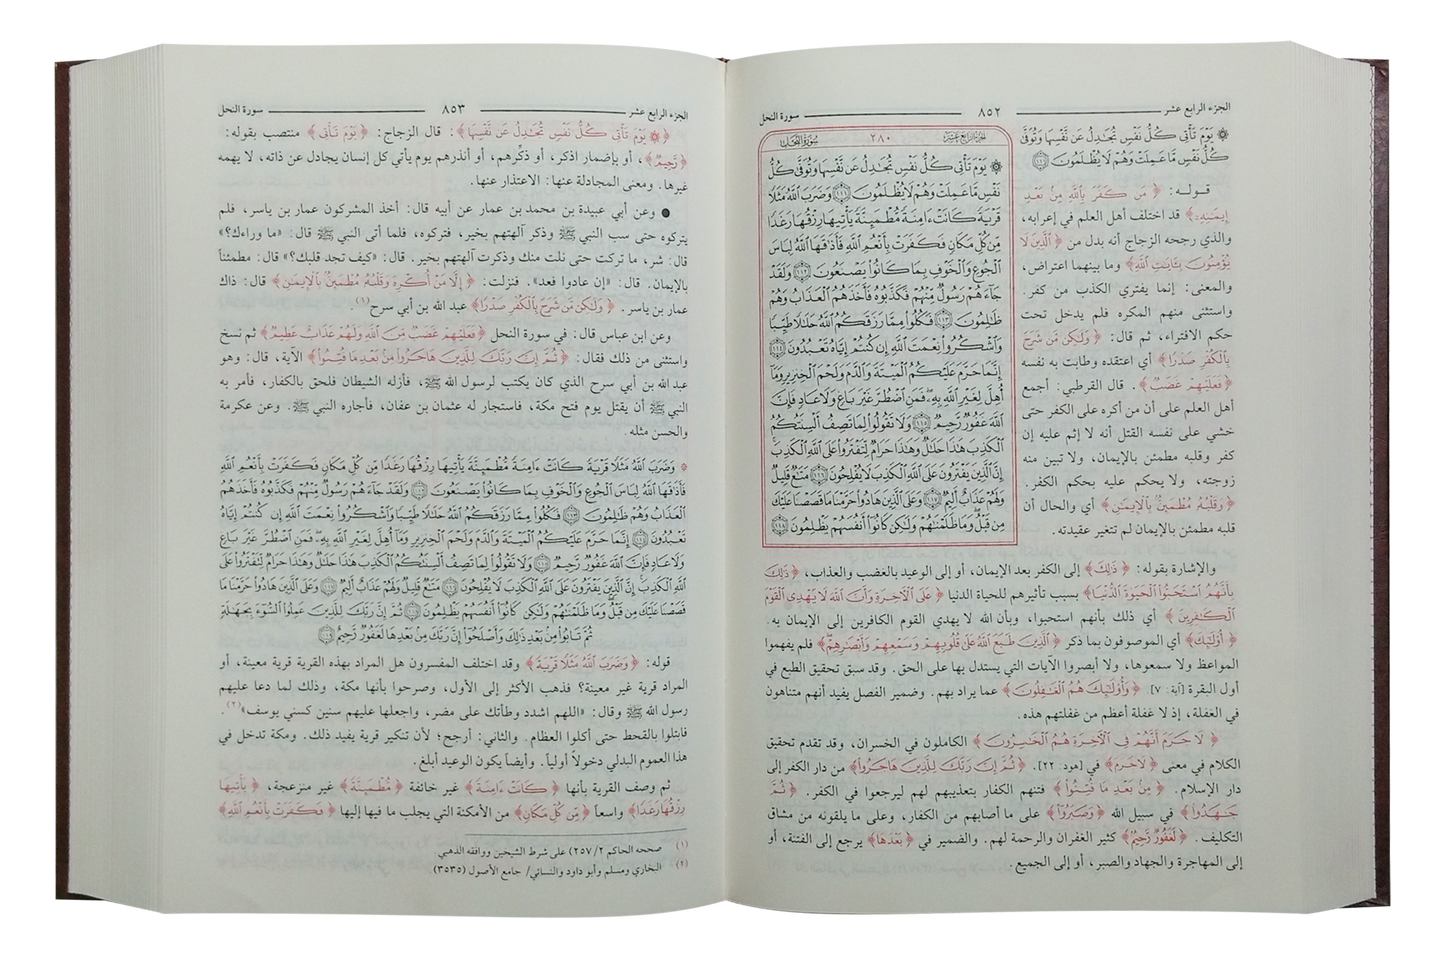 الجزء الرابع عشر ٨٥٢ سورة النحل
۞ يَوْمَ تَأْتِى كُلُّ نَفْسٍ تُجَٰدِلُ عَن نَّفْسِهَا وَتُوَفَّىٰ
كُلُّ نَفْسٍ مَّا عَمِلَتْ وَهُمْ لَا يُظْلَمُونَ ۝١١١
قوله: ﴿مَن كَفَرَ بِٱللَّهِ مِنۢ بَعْدِ
إِيمَٰنِهِۦٓ﴾ قد اختلف أهل العلم في إعرابه،
والذي رجحه الزجاج أنه بدل من ﴿ٱلَّذِينَ لَا
يُؤْمِنُونَ بِـَٔايَٰتِ ٱللَّهِ﴾ وما بينهما اعتراض،
والمعنى: إنما يفتري الكذب من كفر.
واستثنى منهم المكره فلم يدخل تحت
حكم الافتراء، ثم قال: ﴿وَلَٰكِن مَّن شَرَحَ
بِٱلْكُفْرِ صَدْرًا﴾ أي اعتقده وطابت به نفسه
﴿فَعَلَيْهِمْ غَضَبٌ﴾. قال القرطبي: أجمع
أهل العلم على أن من أكره على الكفر حتى
خشي على نفسه القتل أنه لا إثم عليه إن
كفر وقلبه مطمئن بالإيمان، ولا تبين منه
زوجته، ولا يحكم عليه بحكم الكفر.
﴿وَقَلْبُهُۥ مُطْمَئِنٌّۢ بِٱلْإِيمَٰنِ﴾ أي والحال أن
قلبه مطمئن بالإيمان لم تتغير عقيدته.
الجزء الرابع عشر ٢٨٠ سورة النحل
۞ يَوْمَ تَأْتِى كُلُّ نَفْسٍ تُجَٰدِلُ عَن نَّفْسِهَا وَتُوَفَّىٰ كُلُّ
نَفْسٍ مَّا عَمِلَتْ وَهُمْ لَا يُظْلَمُونَ ۝١١١ وَضَرَبَ ٱللَّهُ مَثَلًا
قَرْيَةً كَانَتْ ءَامِنَةً مُّطْمَئِنَّةً يَأْتِيهَا رِزْقُهَا رَغَدًا
مِّن كُلِّ مَكَانٍ فَكَفَرَتْ بِأَنْعُمِ ٱللَّهِ فَأَذَٰقَهَا ٱللَّهُ لِبَاسَ
ٱلْجُوعِ وَٱلْخَوْفِ بِمَا كَانُوا۟ يَصْنَعُونَ ۝١١٢ وَلَقَدْ
جَآءَهُمْ رَسُولٌ مِّنْهُمْ فَكَذَّبُوهُ فَأَخَذَهُمُ ٱلْعَذَابُ وَهُمْ
ظَٰلِمُونَ ۝١١٣ فَكُلُوا۟ مِمَّا رَزَقَكُمُ ٱللَّهُ حَلَٰلًا طَيِّبًا
وَٱشْكُرُوا۟ نِعْمَتَ ٱللَّهِ إِن كُنتُمْ إِيَّاهُ تَعْبُدُونَ ۝١١٤
إِنَّمَا حَرَّمَ عَلَيْكُمُ ٱلْمَيْتَةَ وَٱلدَّمَ وَلَحْمَ ٱلْخِنزِيرِ وَمَآ
أُهِلَّ لِغَيْرِ ٱللَّهِ بِهِۦ فَمَنِ ٱضْطُرَّ غَيْرَ بَاغٍ وَلَا عَادٍ فَإِنَّ
ٱللَّهَ غَفُورٌ رَّحِيمٌ ۝١١٥ وَلَا تَقُولُوا۟ لِمَا تَصِفُ أَلْسِنَتُكُمُ
ٱلْكَذِبَ هَٰذَا حَلَٰلٌ وَهَٰذَا حَرَامٌ لِّتَفْتَرُوا۟ عَلَى ٱللَّهِ ٱلْكَذِبَ
إِنَّ ٱلَّذِينَ يَفْتَرُونَ عَلَى ٱللَّهِ ٱلْكَذِبَ لَا يُفْلِحُونَ ۝١١٦ مَتَٰعٌ قَلِيلٌ
وَلَهُمْ عَذَابٌ أَلِيمٌ ۝١١٧ وَعَلَى ٱلَّذِينَ هَادُوا۟ حَرَّمْنَا مَا قَصَصْنَا عَلَيْكَ
مِن قَبْلُ وَمَا ظَلَمْنَٰهُمْ وَلَٰكِن كَانُوٓا۟ أَنفُسَهُمْ يَظْلِمُونَ ۝١١٨
والإشارة بقوله: ﴿ذَٰلِكَ﴾ إلى الكفر بعد الإيمان، أو إلى الوعيد بالغضب والعذاب، ﴿ذَٰلِكَ
بِأَنَّهُمُ ٱسْتَحَبُّوا۟ ٱلْحَيَوٰةَ ٱلدُّنْيَا﴾ بسبب تأثيرهم للحياة الدنيا ﴿عَلَى ٱلْـَٔاخِرَةِ وَأَنَّ ٱللَّهَ لَا يَهْدِى ٱلْقَوْمَ
ٱلْكَٰفِرِينَ﴾ أي ذلك بأنهم استحبوا، وبأن الله لا يهدي القوم الكافرين إلى الإيمان به.
﴿أُو۟لَٰٓئِكَ﴾ أي الموصوفون بما ذكر ﴿ٱلَّذِينَ طَبَعَ ٱللَّهُ عَلَىٰ قُلُوبِهِمْ وَسَمْعِهِمْ وَأَبْصَٰرِهِمْ﴾ فلم يفهموا
المواعظ ولا سمعوها، ولا أبصروا الآيات التي يستدل بها على الحق. وقد سبق تحقيق الطبع في
أول البقرة [آية: ٧]. ﴿وَأُو۟لَٰٓئِكَ هُمُ ٱلْغَٰفِلُونَ﴾ عما يراد بهم. وضمير الفصل يفيد أنهم متناهون
في الغفلة، إذ لا غفلة أعظم من غفلتهم هذه.
﴿لَا جَرَمَ أَنَّهُمْ فِى ٱلْـَٔاخِرَةِ هُمُ ٱلْخَٰسِرُونَ﴾ الكاملون في الخسران، وقد تقدم تحقيق
الكلام في معنى ﴿لَا جَرَمَ﴾ في [هود: ٢٢]. ﴿ثُمَّ إِنَّ رَبَّكَ لِلَّذِينَ هَاجَرُوا۟﴾ من دار الكفر إلى
دار الإسلام. ﴿مِنۢ بَعْدِ مَا فُتِنُوا۟﴾ فتنهم الكفار بتعذيبهم لهم ليرجعوا في الكفر. ﴿ثُمَّ
جَٰهَدُوا۟﴾ في سبيل الله ﴿وَصَبَرُوٓا۟﴾ على ما أصابهم من الكفار، وعلى ما يلقونه من مشاق
التكليف. ﴿لَغَفُورٌ رَّحِيمٌ﴾ كثير الغفران والرحمة لهم. والضمير في ﴿بَعْدِهَا﴾ يرجع إلى الفتنة، أو
إلى المهاجرة والجهاد والصبر، أو إلى الجميع.
الجزء الرابع عشر ٨٥٣ سورة النحل
﴿۞ يَوْمَ تَأْتِى كُلُّ نَفْسٍ تُجَٰدِلُ عَن نَّفْسِهَا﴾: قال الزجاج: ﴿يَوْمَ تَأْتِى﴾ منتصب بقوله:
﴿رَّحِيمٌ﴾، أو بإضمار اذكر، أو ذكِّرهم، أو أنذرهم يوم يأتي كل إنسان يجادل عن ذاته، لا يهمه
غيرها. ومعنى المجادلة عنها: الاعتذار عنها.
● وعن أبي عبيدة بن محمد بن عمار عن أبيه قال: أخذ المشركون عمار بن ياسر، فلم
يتركوه حتى سب النبي ﷺ وذكر آلهتهم بخير، فتركوه، فلما أتى النبي ﷺ قال: «ما وراءك؟»
قال: شر، ما تركت حتى نلت منك وذكرت آلهتهم بخير. قال: «كيف تجد قلبك؟» قال: مطمئناً
بالإيمان. قال: «إن عادوا فعد». فنزلت: ﴿إِلَّا مَنْ أُكْرِهَ وَقَلْبُهُۥ مُطْمَئِنٌّۢ بِٱلْإِيمَٰنِ﴾ قال: ذاك
عمار بن ياسر. ﴿وَلَٰكِن مَّن شَرَحَ بِٱلْكُفْرِ صَدْرًا﴾ عبد الله بن أبي سرح(١).
وعن ابن عباس قال: في سورة النحل ﴿فَعَلَيْهِمْ غَضَبٌ مِّنَ ٱللَّهِ وَلَهُمْ عَذَابٌ عَظِيمٌ﴾ ثم نسخ
واستثنى من ذلك فقال: ﴿ثُمَّ إِنَّ رَبَّكَ لِلَّذِينَ هَاجَرُوا۟ مِنۢ بَعْدِ مَا فُتِنُوا۟﴾ الآية، قال: وهو
عبد الله بن أبي سرح الذي كان يكتب لرسول الله ﷺ، فأزله الشيطان فلحق بالكفار، فأمر به
النبي ﷺ أن يقتل يوم فتح مكة، فاستجار له عثمان بن عفان، فأجاره النبي ﷺ. وعن عكرمة
والحسن مثله.
وَضَرَبَ ٱللَّهُ مَثَلًا قَرْيَةً كَانَتْ ءَامِنَةً مُّطْمَئِنَّةً يَأْتِيهَا رِزْقُهَا رَغَدًا مِّن كُلِّ مَكَانٍ فَكَفَرَتْ بِأَنْعُمِ ٱللَّهِ
فَأَذَٰقَهَا ٱللَّهُ لِبَاسَ ٱلْجُوعِ وَٱلْخَوْفِ بِمَا كَانُوا۟ يَصْنَعُونَ ۝١١٢ وَلَقَدْ جَآءَهُمْ رَسُولٌ مِّنْهُمْ فَكَذَّبُوهُ فَأَخَذَهُمُ
ٱلْعَذَابُ وَهُمْ ظَٰلِمُونَ ۝١١٣ فَكُلُوا۟ مِمَّا رَزَقَكُمُ ٱللَّهُ حَلَٰلًا طَيِّبًا وَٱشْكُرُوا۟ نِعْمَتَ ٱللَّهِ إِن كُنتُمْ إِيَّاهُ
تَعْبُدُونَ ۝١١٤ إِنَّمَا حَرَّمَ عَلَيْكُمُ ٱلْمَيْتَةَ وَٱلدَّمَ وَلَحْمَ ٱلْخِنزِيرِ وَمَآ أُهِلَّ لِغَيْرِ ٱللَّهِ بِهِۦ فَمَنِ ٱضْطُرَّ غَيْرَ بَاغٍ
وَلَا عَادٍ فَإِنَّ ٱللَّهَ غَفُورٌ رَّحِيمٌ ۝١١٥ وَلَا تَقُولُوا۟ لِمَا تَصِفُ أَلْسِنَتُكُمُ ٱلْكَذِبَ هَٰذَا حَلَٰلٌ وَهَٰذَا حَرَامٌ لِّتَفْتَرُوا۟ عَلَى
ٱللَّهِ ٱلْكَذِبَ إِنَّ ٱلَّذِينَ يَفْتَرُونَ عَلَى ٱللَّهِ ٱلْكَذِبَ لَا يُفْلِحُونَ ۝١١٦ مَتَٰعٌ قَلِيلٌ وَلَهُمْ عَذَابٌ أَلِيمٌ ۝١١٧ وَعَلَى ٱلَّذِينَ هَادُوا۟ حَرَّمْنَا مَا
قَصَصْنَا عَلَيْكَ مِن قَبْلُ وَمَا ظَلَمْنَٰهُمْ وَلَٰكِن كَانُوٓا۟ أَنفُسَهُمْ يَظْلِمُونَ ۝١١٨ ثُمَّ إِنَّ رَبَّكَ لِلَّذِينَ عَمِلُوا۟ ٱلسُّوٓءَ بِجَهَٰلَةٍ
ثُمَّ تَابُوا۟ مِنۢ بَعْدِ ذَٰلِكَ وَأَصْلَحُوٓا۟ إِنَّ رَبَّكَ مِنۢ بَعْدِهَا لَغَفُورٌ رَّحِيمٌ ۝١١٩
قوله: ﴿وَضَرَبَ ٱللَّهُ مَثَلًا قَرْيَةً﴾ وقد اختلف المفسرون هل المراد بهذه القرية قرية معينة، أو
المراد قرية غير معينة؟ فذهب الأكثر إلى الأول، وصرحوا بأنها مكة، وذلك لما دعا عليهم
رسول الله ﷺ وقال: «اللهم اشدد وطأتك على مضر، واجعلها عليهم سنين كسني يوسف»(٢).
فابتلوا بالقحط حتى أكلوا العظام. والثاني: أرجح؛ لأن تنكير قرية يفيد ذلك. ومكة تدخل في
هذا العموم البدلي دخولاً أولياً. وأيضاً يكون الوعيد أبلغ.
ثم وصف القرية بأنها ﴿كَانَتْ ءَامِنَةً﴾ غير خائفة ﴿مُّطْمَئِنَّةً﴾ غير منزعجة، ﴿يَأْتِيهَا
رِزْقُهَا رَغَدًا﴾ واسعاً ﴿مِّن كُلِّ مَكَانٍ﴾ من الأمكنة التي يجلب ما فيها إليها ﴿فَكَفَرَتْ بِأَنْعُمِ ٱللَّهِ﴾
(١) صححه الحاكم (٢/ ٢٥٧) على شرط الشيخين ووافقه الذهبي
(٢) البخاري ومسلم وأبو داود والنسائي/ جامع الأصول (٣٥٣٥)